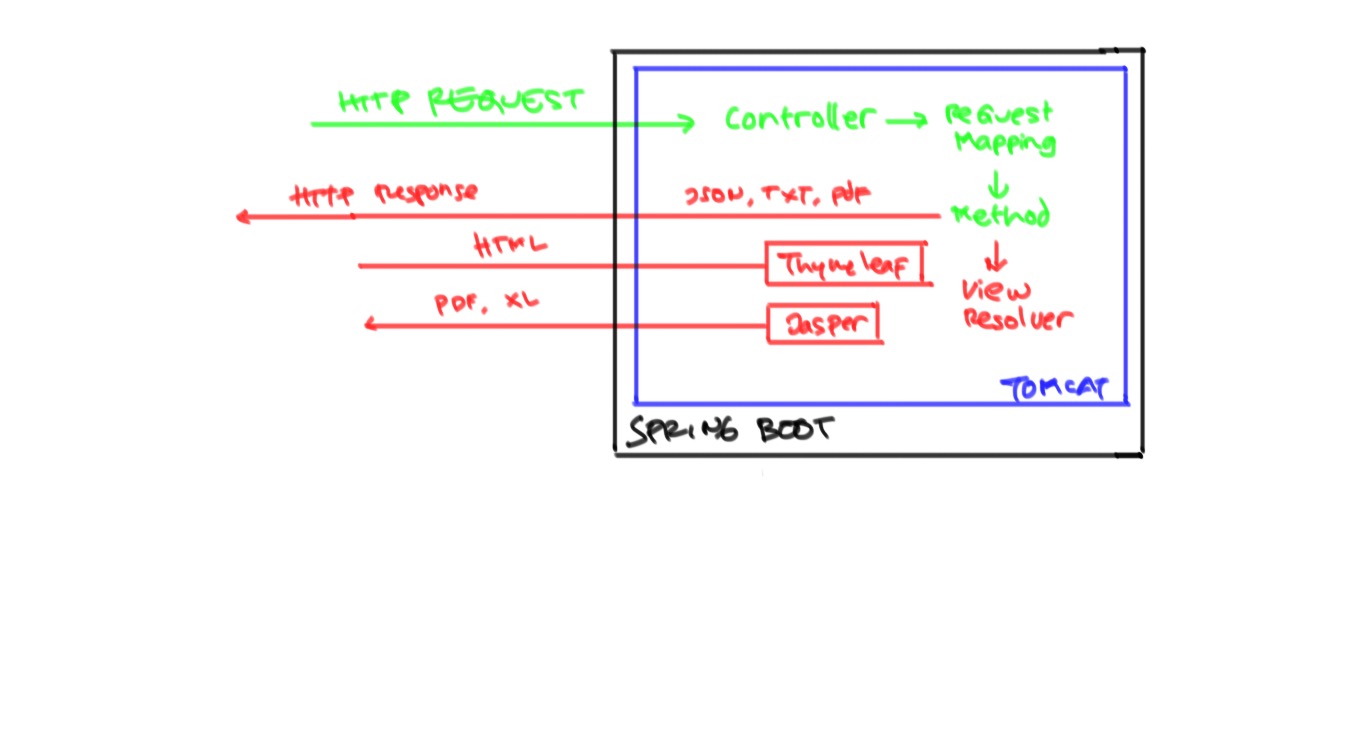 HTTP REQUEST
Controller
Request
Mapping
HTTP Response
JSON, TXT, pdf
Method
HTML
Thymeleaf
View
Resolver
PDF, XL
Jasper
TOMCAT
SPRING BOOT